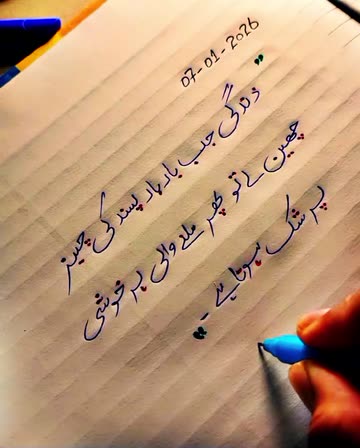 07-01-2026
" زندگی جب بار بار پسند کی چیز
چھین لے تو پھر ملنے والی ہر خوشی
پر شک ہوتا ہے ۔"